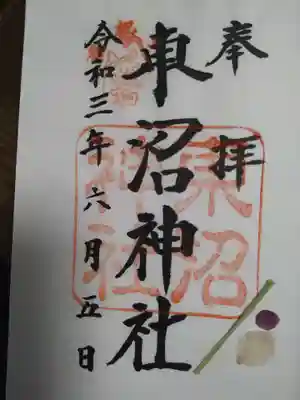 奉拝
東沼神社
東沼神社
令和三年六月五日